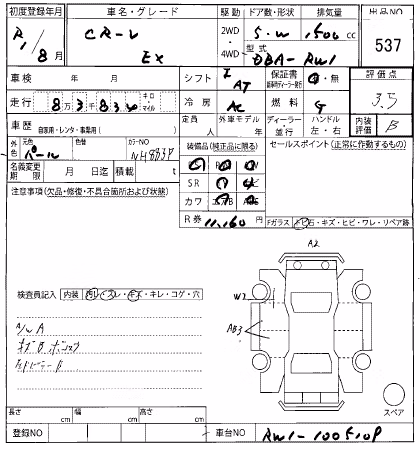 初度登録年月 車名・グレード 駆動 ドア数・形状 排気量 出品NO
R1/8月 CR-V EX 2WD 4WD 5.W 1,500cc 537
型式 DBA-RW1
車検 年 月 シフト I AT 保証書 有・無 評価点 3.5
走行 8万3千830 キロ・マイル 冷房 AC 燃料 G
車歴 自家用・レンタ・事業用( ) 定員 人 外車モデル 年 ディーラー・並行 ハンドル 左・右 内装評価 B
外色 元色 パール 色替 カラーNO NH883P 装備品(純正品に限る) セールスポイント(正常に作動するもの)
名義変更期限 月 日迄 積載 t SR
注意事項(欠品・修復・不具合箇所および状態) カワ エアB
R券 11,160円 Fガラス トビ石・キズ・ヒビ・ワレ・リペア跡
A2
W2
AB3
検査員記入 内装 汚レ・スレ・キズ・キレ・コゲ・穴
A/W A
キズB
スペア
長さ cm 幅 cm 高さ cm
登録NO 車台NO RW1-1005108